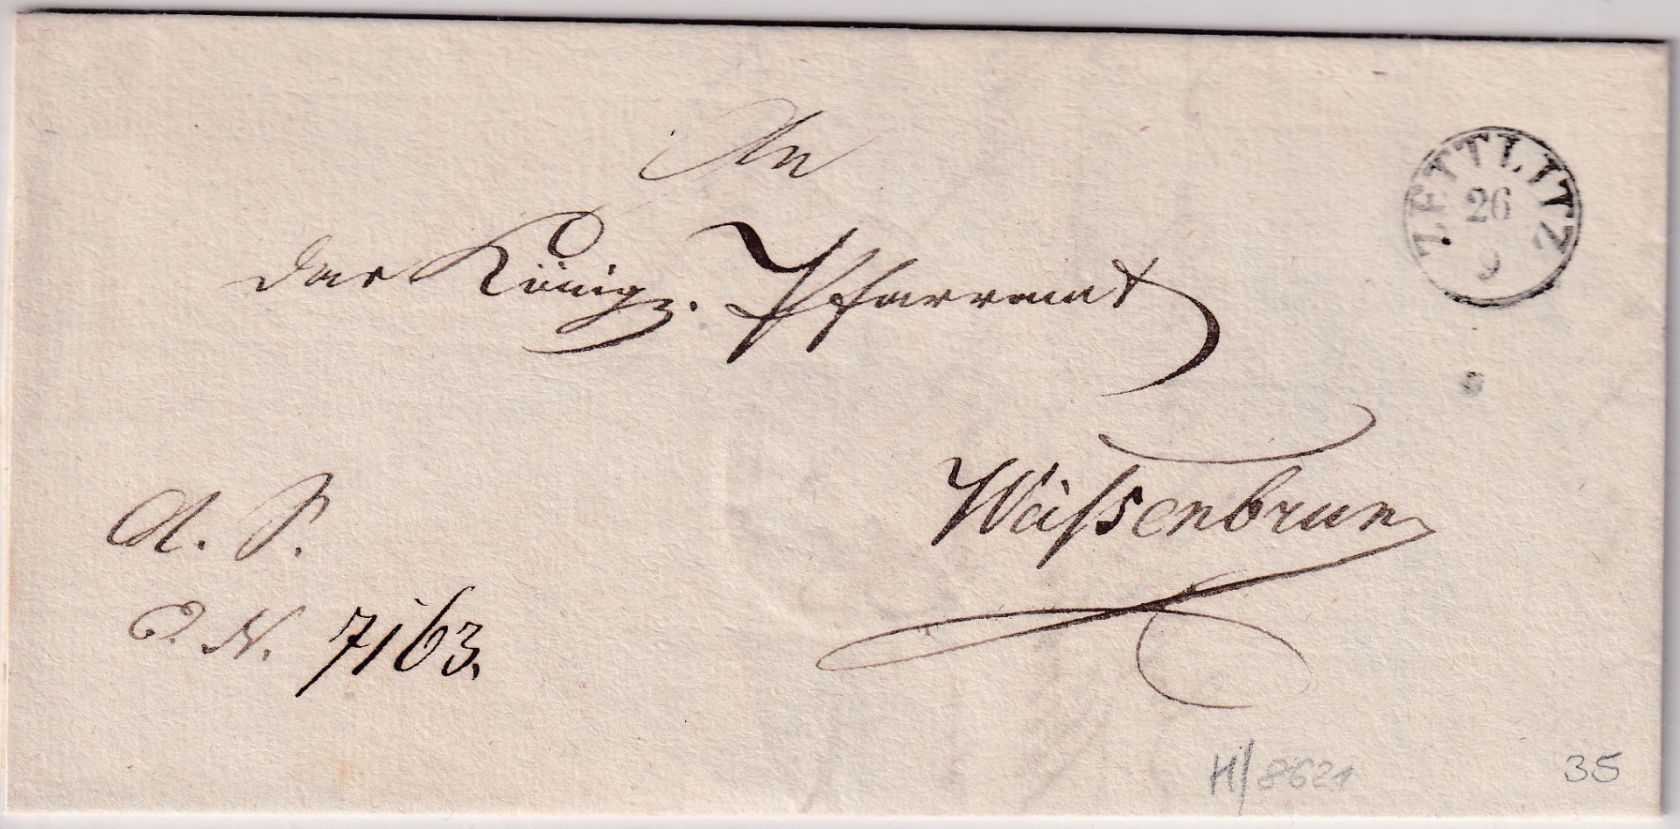 An
das Königz. Pfarramt
Waißenbrun
A. S.
E. N. 7163.
ZETTLITZ
26
9
H/8621
35